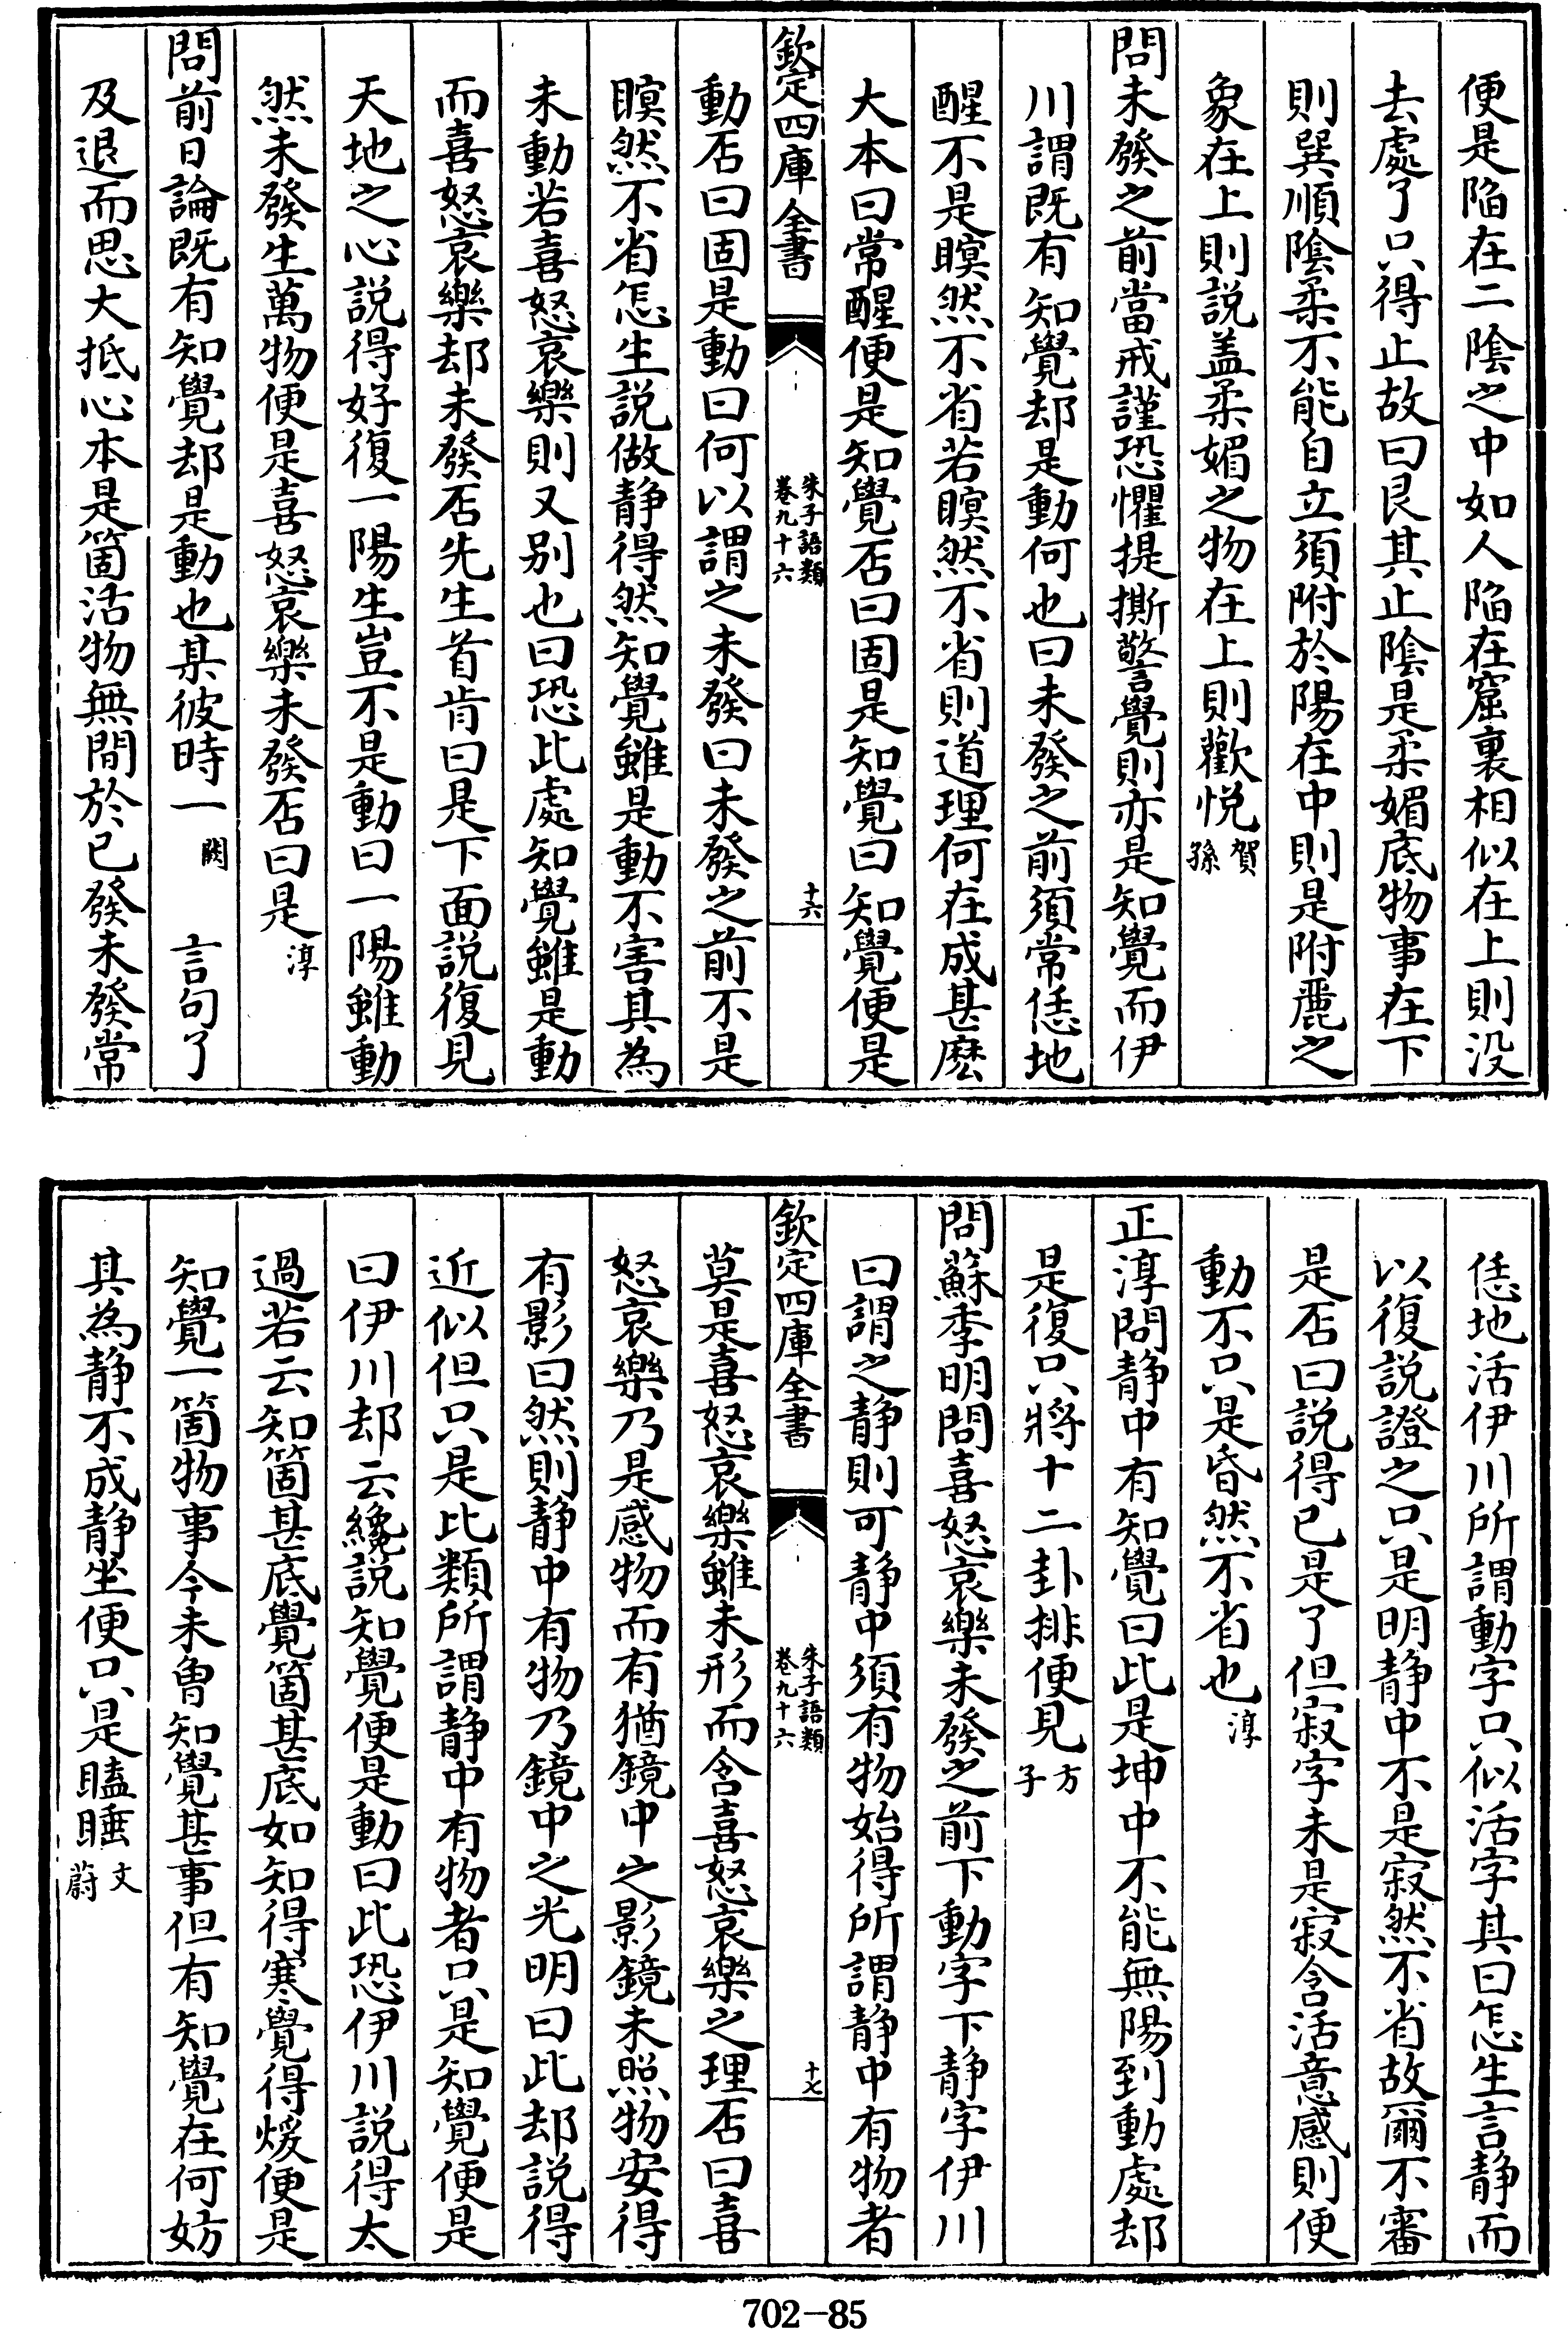 便是陷在二陰之中如人陷在窟裏相似在上則沒
去處了只得止故曰艮其止陰是柔媚底物事在下
則巽順陰柔不能自立須附於陽在中則是附麗之
象在上則說盖柔媚之物在上則歡悦賀孫
問未發之前當戒謹恐懼提撕警覺則亦是知覺而伊
川謂既有知覺却是動何也曰未發之前須常恁地
醒不是瞑然不省若瞑然不省則道理何在成甚麽
大本曰常醒便是知覺否曰固是知覺曰知覺便是
欽定四庫全書
朱子語類
卷九十六
十六
動否曰固是動曰何以謂之未發曰未發之前不是
瞑然不省怎生説做静得然知覺雖是動不害其為
未動若喜怒哀樂則又别也曰恐此處知覺雖是動
而喜怒哀樂却未發否先生首肯曰是下面説復見
天地之心説得好復一陽生豈不是動曰一陽雖動
然未發生萬物便是喜怒哀樂未發否曰是淳
問前日論既有知覺却是動也某彼時一闕言句了
及退而思大抵心本是箇活物無間於已發未發常
恁地活伊川所謂動字只似活字其曰怎生言静而
以復説證之只是明静中不是寂然不省故爾不審
是否曰説得已是了但寂字未是寂含活意感則便
動不只是昏然不省也淳
正淳問静中有知覺曰此是坤中不能無陽到動處却
是復只將十二卦排便見方子
問蘇季明問喜怒哀樂未發之前下動字下静字伊川
曰謂之静則可静中須有物始得所謂静中有物者
欽定四庫全書
朱子語類
卷九十六
十七
莫是喜怒哀樂雖未形而含喜怒哀樂之理否曰喜
怒哀樂乃是感物而有猶鏡中之影鏡未照物安得
有影曰然則静中有物乃鏡中之光明曰此却説得
近似但只是比類所謂静中有物者只是知覺便是
曰伊川却云纔説知覺便是動曰此恐伊川説得太
過若云知箇甚底覺箇甚底如知得寒覺得煖便是
知覺一箇物事今未曽知覺甚事但有知覺在何妨
其為静不成静坐便只是瞌睡文蔚
702—85